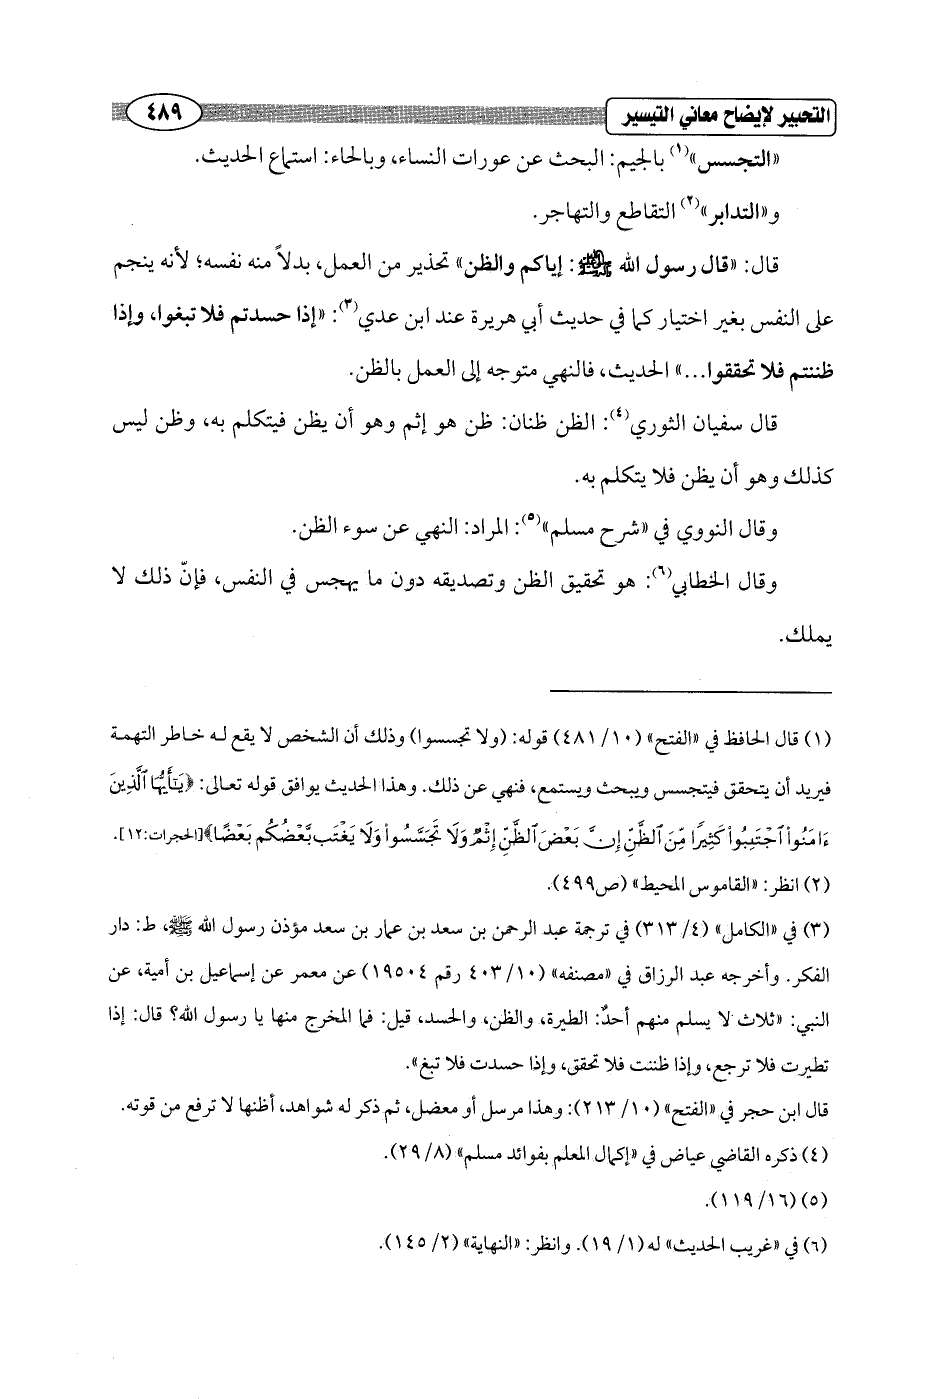 التحبير لإيضاح معاني التيسير ٤٨٩
«التجسس»(١) بالجيم: البحث عن عورات النساء، وبالحاء: استماع الحديث.
و«التدابر»(٢) التقاطع والتهاجر.
قال: «قال رسول الله ﷺ: إياكم والظن» تحذير من العمل، بدلاً منه نفسه؛ لأنه ينجم
على النفس بغير اختيار كما في حديث أبي هريرة عند ابن عدي(٣): «إذا حسدتم فلا تبغوا، وإذا
ظننتم فلا تحققوا...» الحديث، فالنهي متوجه إلى العمل بالظن.
قال سفيان الثوري(٤): الظن ظنان: ظن هو إثم وهو أن يظن فيتكلم به، وظن ليس
كذلك وهو أن يظن فلا يتكلم به.
وقال النووي في «شرح مسلم»(٥): المراد: النهي عن سوء الظن.
وقال الخطابي(٦): هو تحقيق الظن وتصديقه دون ما يهجس في النفس، فإنّ ذلك لا
يملك.
(١) قال الحافظ في «الفتح» (١٠/ ٤٨١) قوله: (ولا تجسسوا) وذلك أن الشخص لا يقع له خاطر التهمة
فيريد أن يتحقق فيتجسس ويبحث ويستمع، فنهي عن ذلك. وهذا الحديث يوافق قوله تعالى: ﴿يَٰٓأَيُّهَا ٱلَّذِينَ
ءَامَنُوا۟ ٱجْتَنِبُوا۟ كَثِيرًا مِّنَ ٱلظَّنِّ إِنَّ بَعْضَ ٱلظَّنِّ إِثْمٌ وَلَا تَجَسَّسُوا۟ وَلَا يَغْتَب بَّعْضُكُم بَعْضًا﴾[الحجرات:١٢].
(٢) انظر: «القاموس المحيط» (ص٤٩٩).
(٣) في «الكامل» (٤/ ٣١٣) في ترجمة عبد الرحمن بن سعد بن عمار بن سعد مؤذن رسول الله ﷺ، ط: دار
الفكر. وأخرجه عبد الرزاق في «مصنفه» (١٠/ ٤٠٣ رقم ١٩٥٠٤) عن معمر عن إسماعيل بن أمية، عن
النبي: «ثلاث لا يسلم منهم أحدٌ: الطيرة، والظن، والحسد، قيل: فما المخرج منها يا رسول الله؟ قال: إذا
تطيرت فلا ترجع، وإذا ظننت فلا تحقق، وإذا حسدت فلا تبغ».
قال ابن حجر في «الفتح» (١٠/ ٢١٣): وهذا مرسل أو معضل، ثم ذكر له شواهد، أظنها لا ترفع من قوته.
(٤) ذكره القاضي عياض في «إكمال المعلم بفوائد مسلم» (٨/ ٢٩).
(٥) (١٦/ ١١٩).
(٦) في «غريب الحديث» له (١/ ١٩). وانظر: «النهاية» (٢/ ١٤٥).